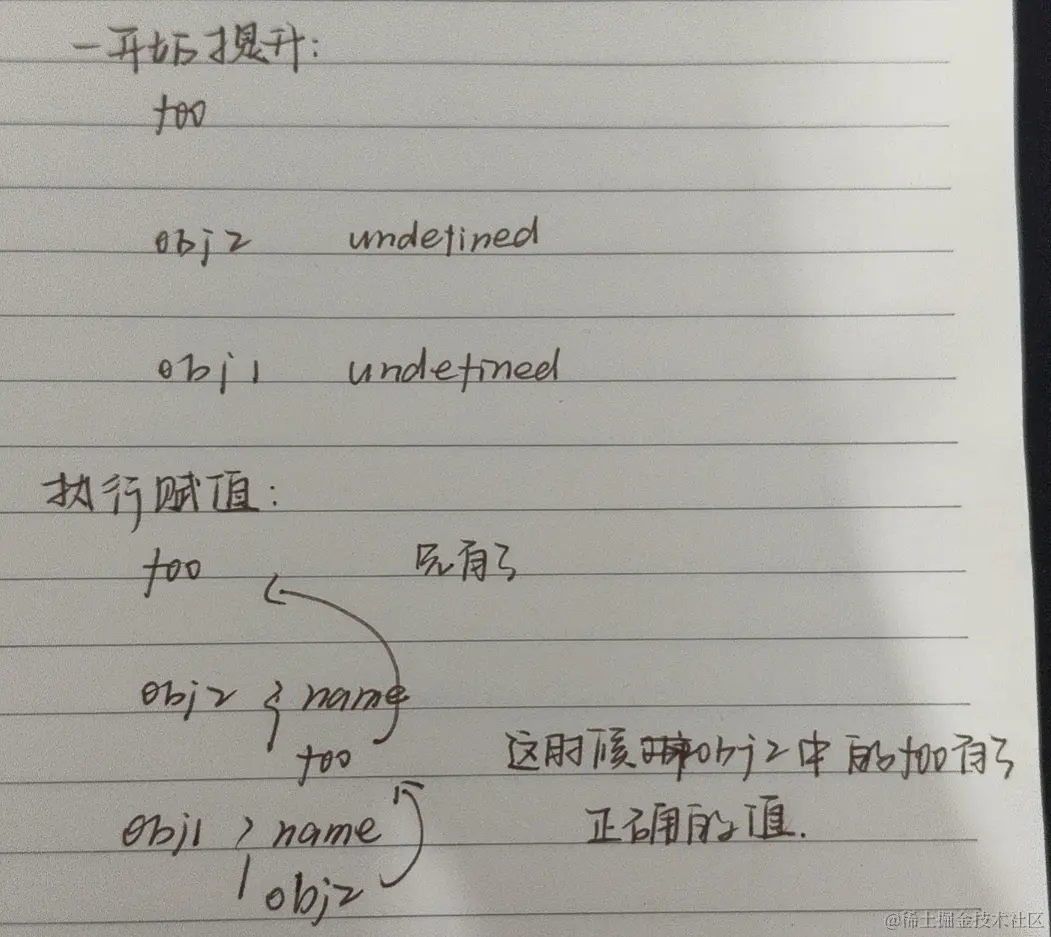 一开始提升:
foo
obj2 undefined
obj1 undefined
执行赋值:
foo 先有了
obj2 { name
foo 这时候obj2中的foo有了
obj1 { name 正确的值.
obj2
@稀土掘金技术社区